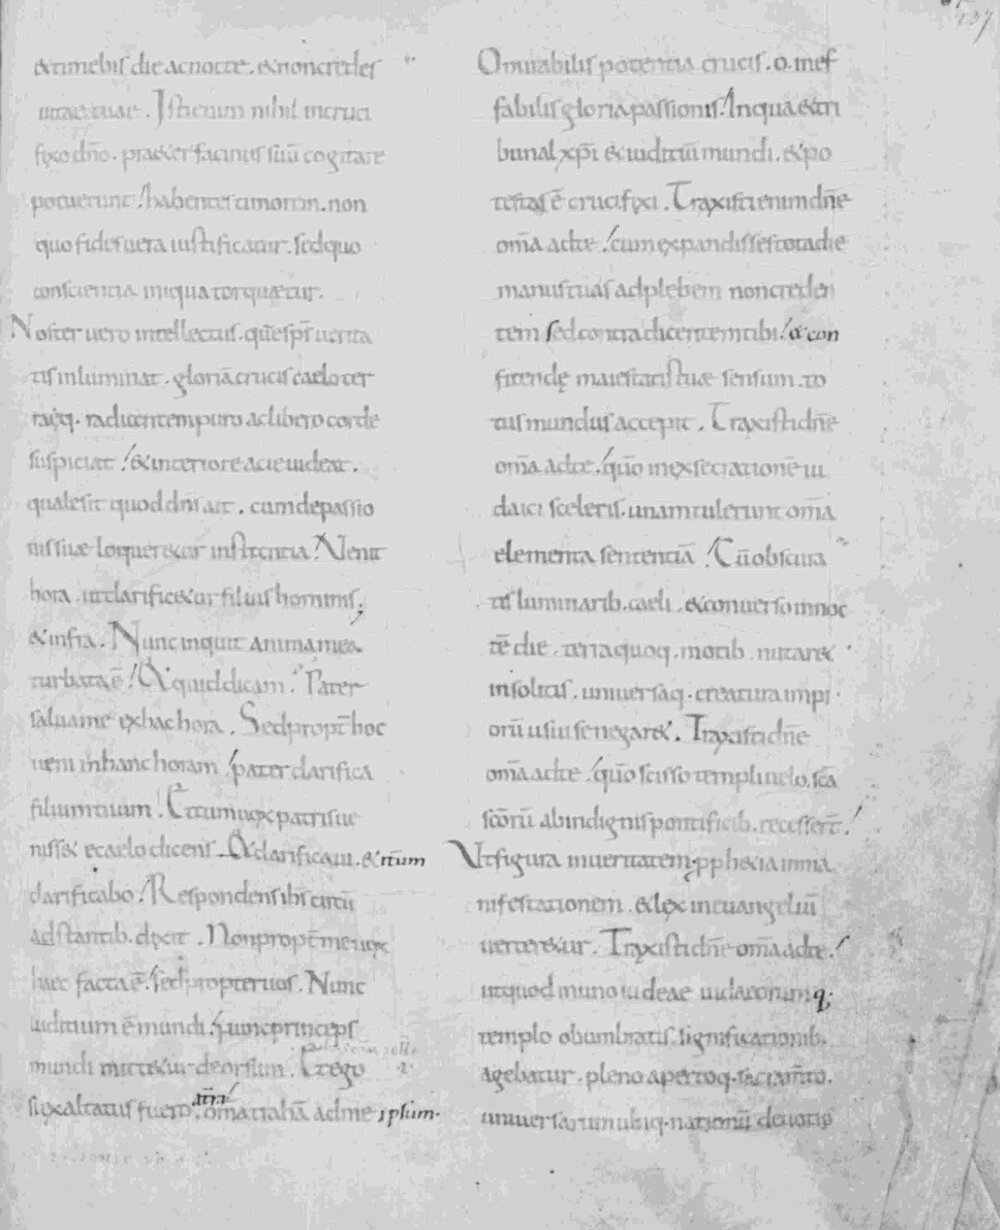 137
& timebis die ac nocte. & non credes
uitae tuae. Isti enim nihil in cruci
fixo dño. praeter facinus suũ cogitare
potuerunt. habentes timorem. non
quo fides uera iustificatur. sed quo
conscientia iniqua torquætur.
Noster uero intellectus. quẽ sps̄ uerita
tis inluminat. gloriã crucis caelo ter
raeq. radiantem puro ac libero corde
suspiciat. & interiore acie uideat.
quale sit quod dn̄s ait. cum de passio
nis suæ loqueretur instantia. Venit
hora. ut clarificetur filius hominis;
& infra. Nunc inquit anima mea
turbata ẽ. & quid dicam. Pater
saluame ex hac hora. Sed propt̄ hoc
ueni in hanc horam. pater clarifica
filium tuum. Et cum uox patris ue
niss& e caelo dicens. & clarificaui. & itũm
clarificabo. Respondens ih̄s circũ
adstantib. dixit. Non propt̄ me uox
haec facta ẽ. sed propter uos. Nunc
iudicium ẽ mundi. nunc princeps
mundi mittetur deorsum. Et ego
si exaltatus fuero. om̄a trahã ad me ipsum.
O mirabilis potentia crucis. o inef
fabilis gloria passionis. In qua & tri
bunal xp̄i & iudiciũ mundi. & po
testas ẽ crucifixi. Traxisti enim dñe
om̄a ad te. cum expandisses tota die
manus tuas ad plebem non creden
tem sed contradicentem tibi. & con
fitendę maiestatis tuæ sensum. to
tus mundus accepit. Traxisti dñe
om̄a ad te. quõ in exsecrationẽ iu
daici sceleris. unam tulerunt om̄a
elementa sententiã. Cũ obscura
tis luminarib. caeli. & conuerso in noc
tẽ die. terra quoq. motib. nutar&
insolitis. uniuersaq. creatura impi
orũ usui se negar&. Traxisti dñe
om̄a ad te. quõ scisso templi uelo. sc̄a
sc̄orũ ab indignis pontificib. recessert̃.
Vt figura in ueritatem. pphetia in ma
nifestationem. & lex in euangeliũ
uerteretur. Traxisti dñe om̄a ad te.
ut quod in uno iudeae
templo obumbratis. significationib.
agebatur. pleno apertoq. sacramt̃o.
uniuersarum ubiq. nationũ deuotio